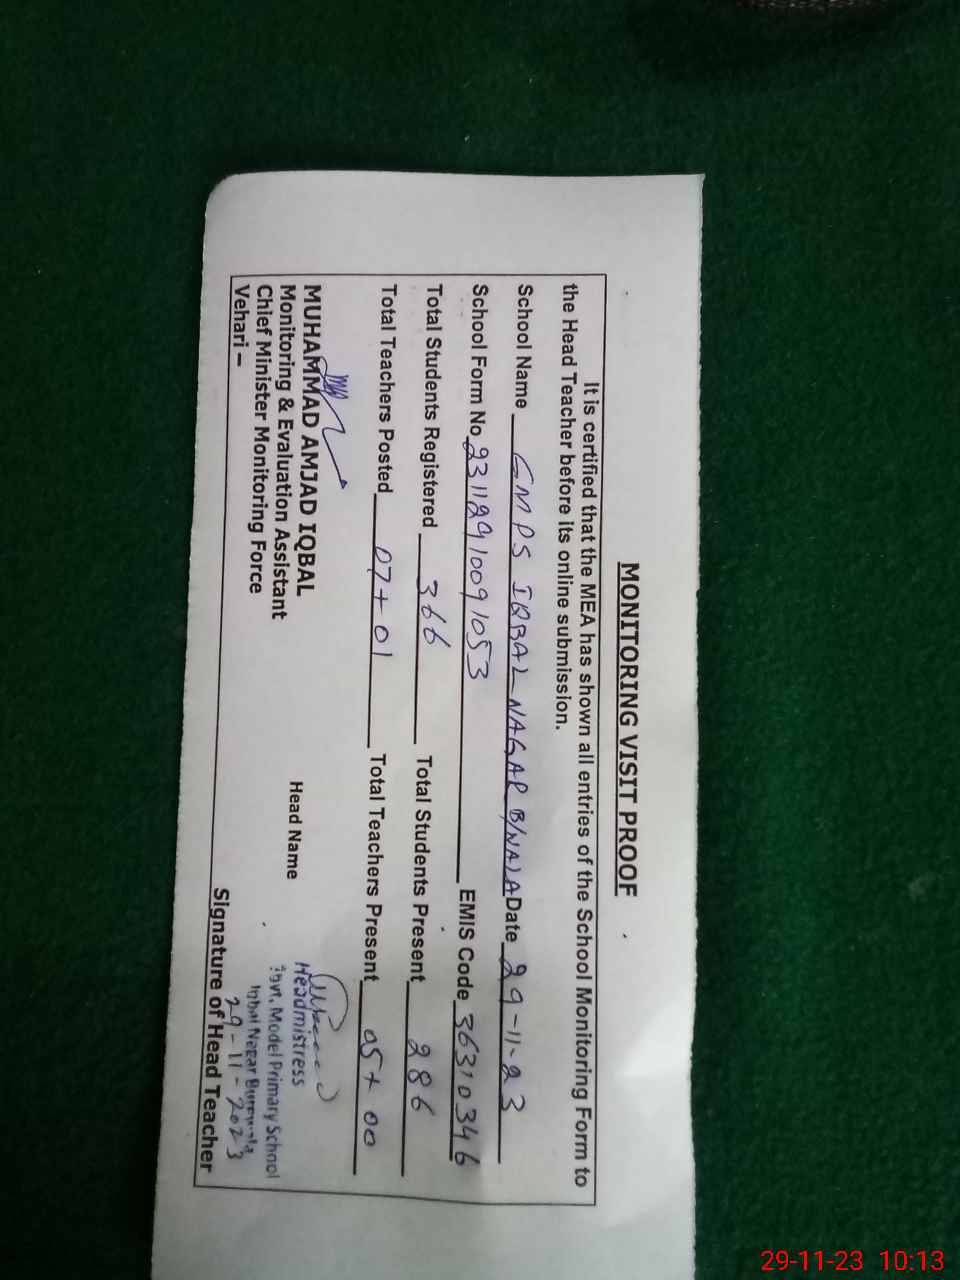 MONITORING VISIT PROOF
It is certified that the MEA has shown all entries of the School Monitoring Form to
the Head Teacher before its online submission.
School Name GMPS IQBAL NAGAR B/WALA Date 29-11-23
School Form No 23112910091053 EMIS Code 36310346
Total Students Registered 366 Total Students Present 286
Total Teachers Posted 07+01 Total Teachers Present 05+00
MUHAMMAD AMJAD IQBAL
Monitoring & Evaluation Assistant
Chief Minister Monitoring Force
Vehari –
Head Name
Headmistress
Govt. Model Primary School
Iqbal Nagar Burewala
29-11-2023
Signature of Head Teacher
29-11-23 10:13